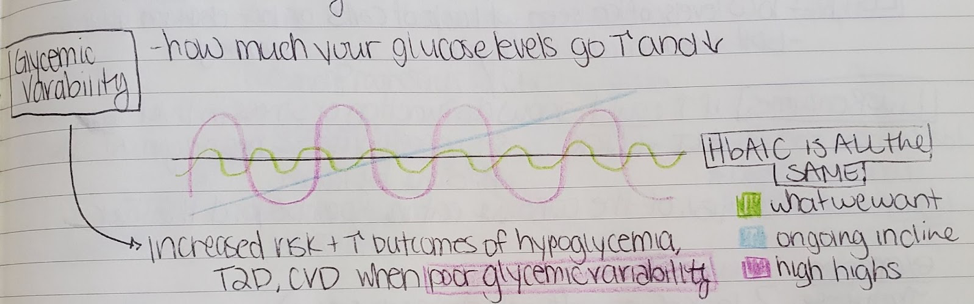 Glycemic
Varability
-how much your glucose levels go ↑ and ↓
HbA1C is All the
SAME!
what we want
ongoing incline
high highs
Increased risk + ↑ outcomes of hypoglycemia,
T2D, CVD when poor glycemic variability